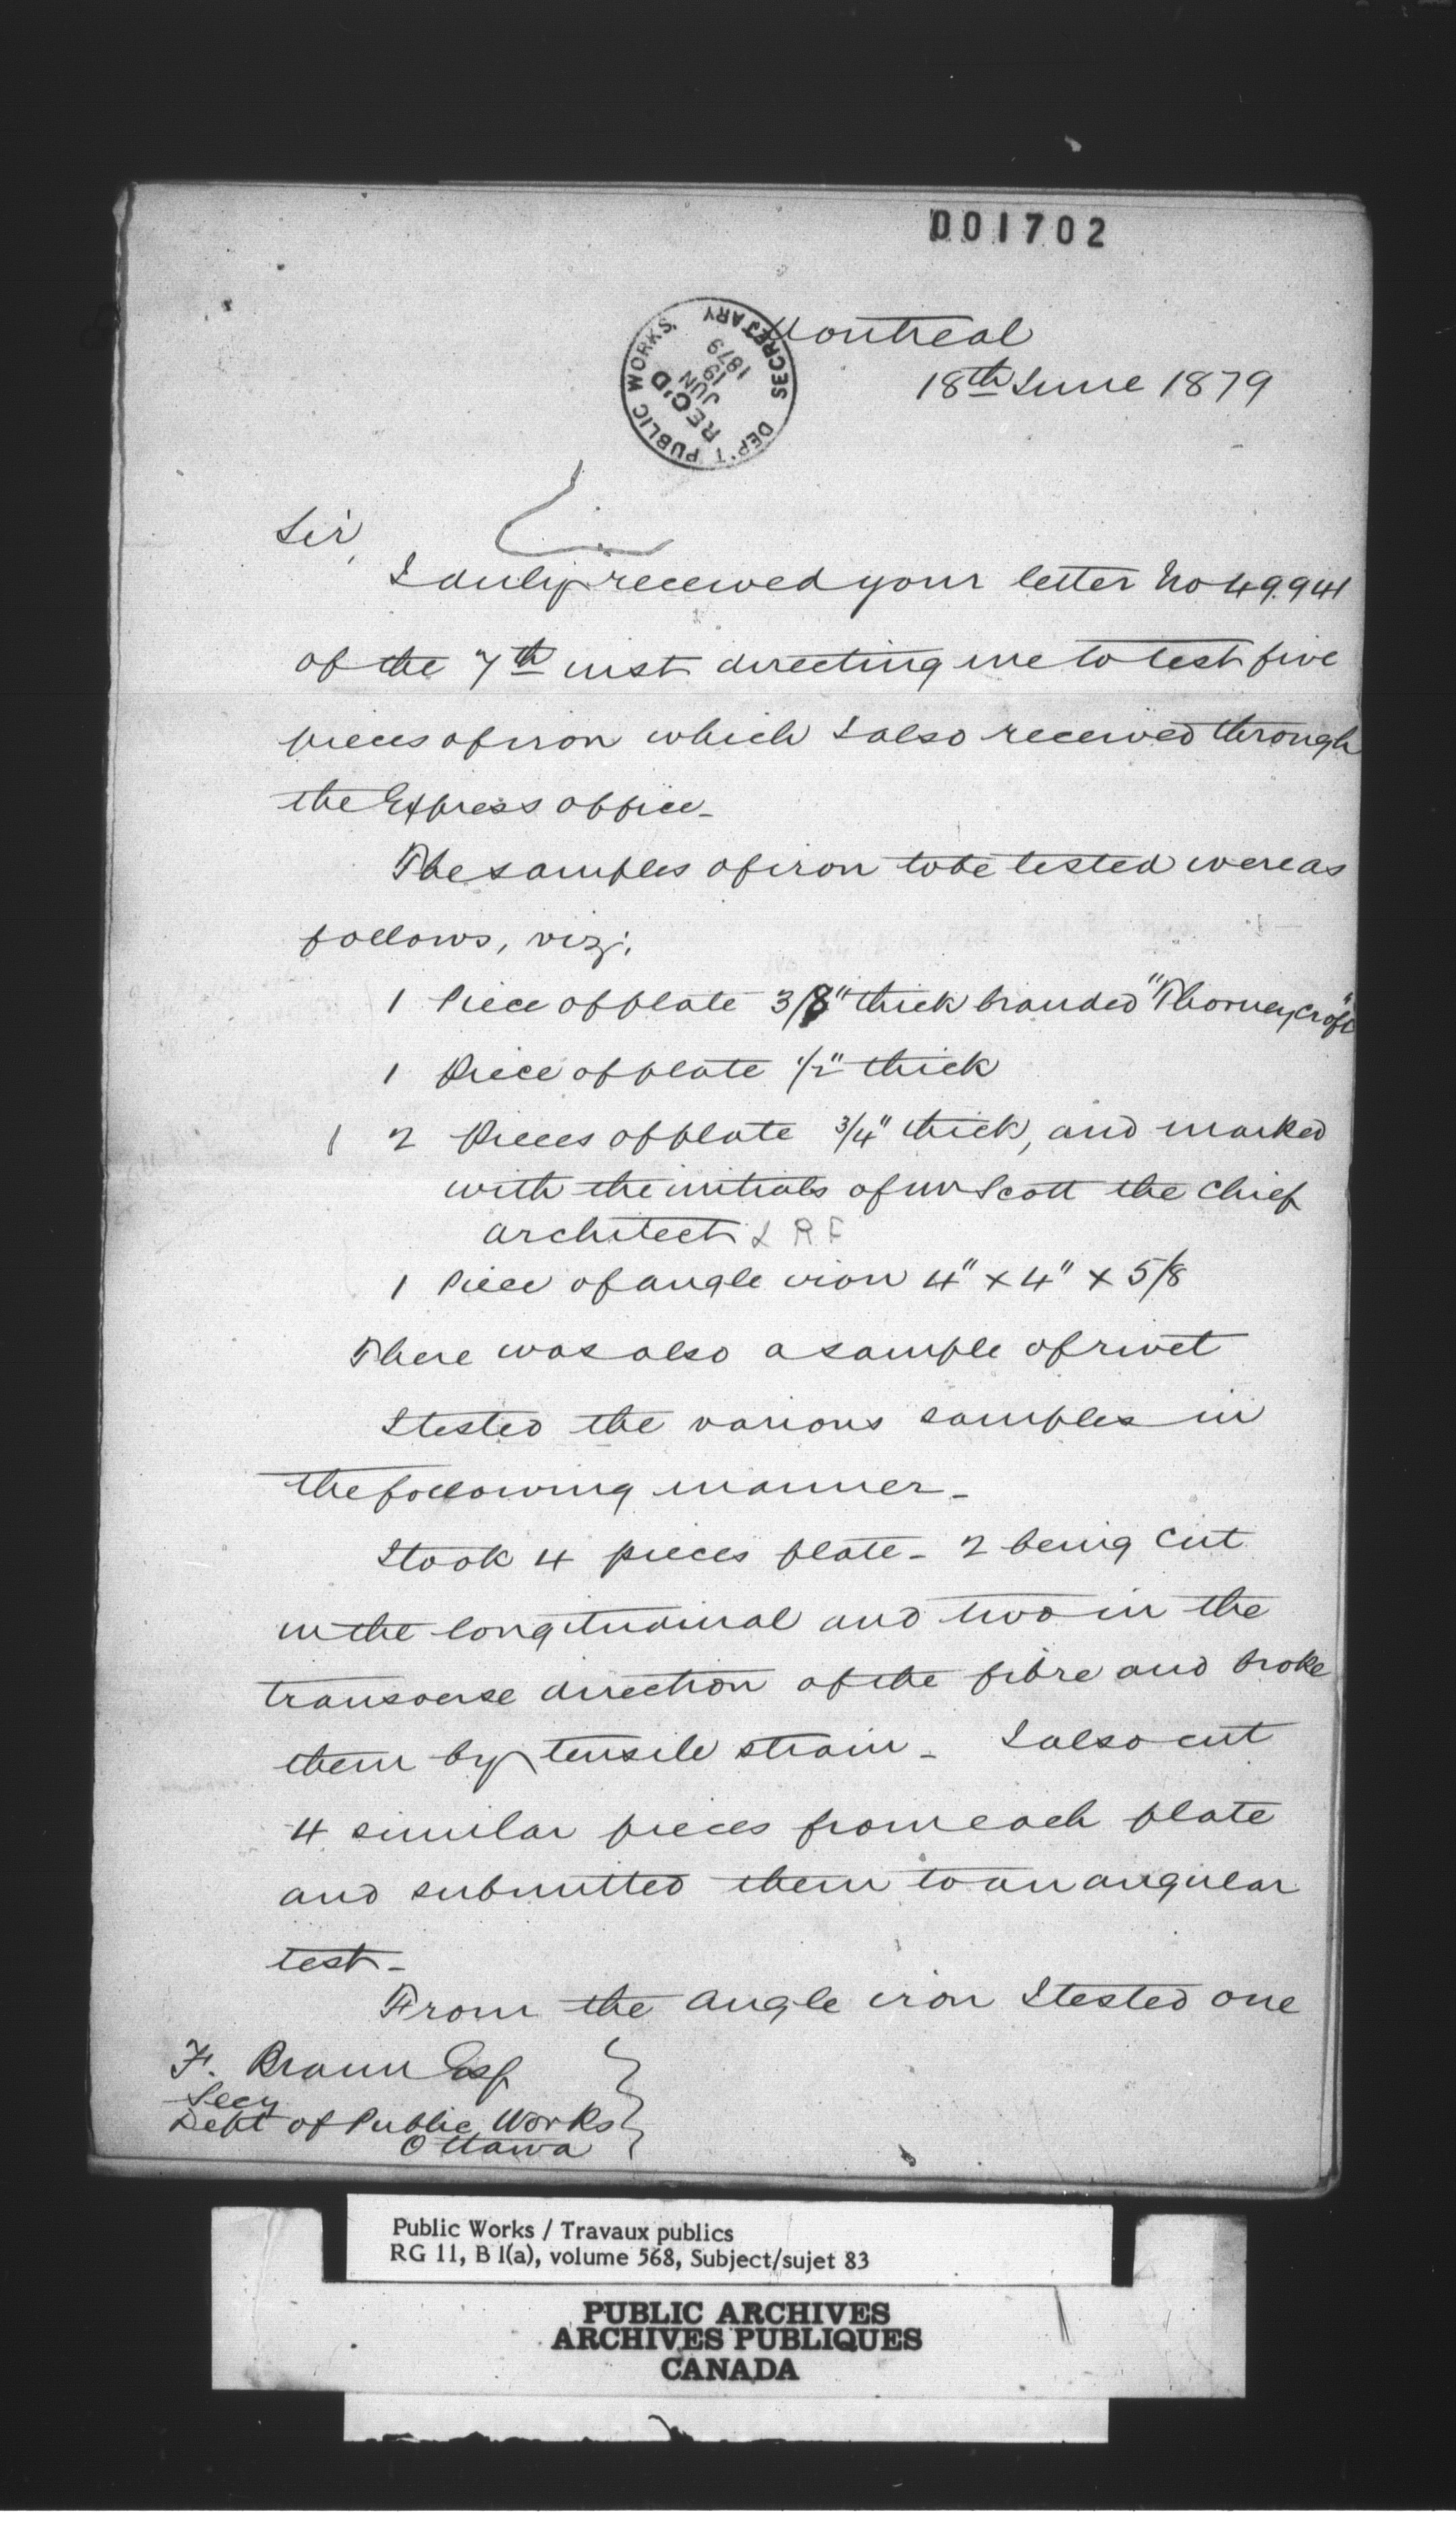 001702
DEP'T PUBLIC WORKS. SECRETARY
REC'D
JUN
19
1879
Montreal
18th June 1879
Sir,
I duly received your letter No 49.941
of the 7th inst directing me to test five
pieces of iron which I also received through
the Express office_
The samples of iron to be tested were as
follows, viz;
1 Piece of plate 3/8" thick branded "Thorneycroft"
1 Piece of plate 1/2" thick
1 2 Pieces of plate 3/4" thick, and marked
with the initials of Mr Scott the Chief
architect R F
1 Piece of angle iron 4" x 4" x 5/8
There was also a sample of rivet
I tested the various samples in
the following manner_
I took 4 pieces plate_ 2 being cut
in the longitudinal and two in the
transverse direction of the fibre and broke
them by tensile strain_ I also cut
4 similar pieces from each plate
and submitted them to an angular
test_
From the angle iron I tested one
F. Braun Esq
Secy
Dept of Public Works
Ottawa
Public Works / Travaux publics
RG 11, B 1(a), volume 568, Subject/sujet 83
PUBLIC ARCHIVES
ARCHIVES PUBLIQUES
CANADA